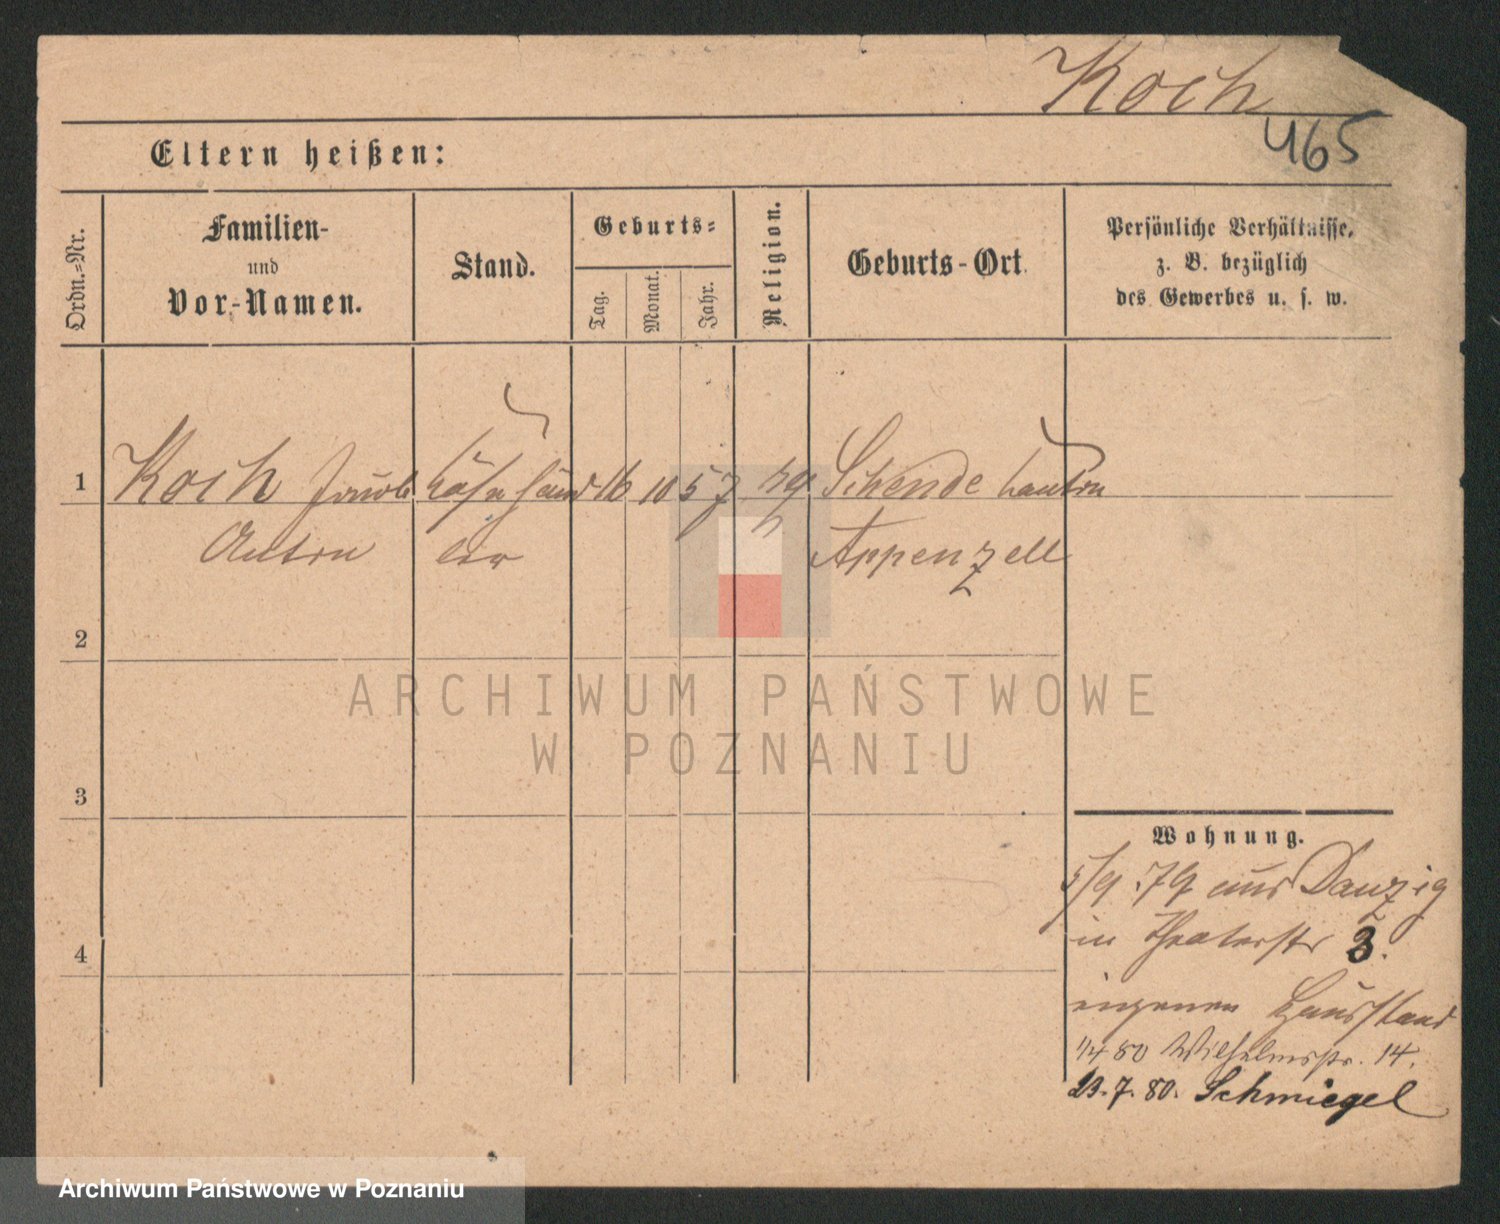 Koch
465
Eltern heißen:
Ordn.=Nr.
Familien-
und
Vor-Namen.
Stand.
Geburts=
Tag.
Monat.
Jahr.
Religion.
Geburts-Ort
Persönliche Verhältnisse,
z. B. bezüglich
des Gewerbes u. s. w.
1 Koch Jacob Käsehänd 16 10 57 Schende Canton
Anton ler Appenzell
2
3
4
ARCHIWUM PAŃSTWOWE
W POZNANIU
Wohnung.
5/9. 79 aus Danzig
in Theaterstr 3.
eigenen Hausstand
1/4 80 Wilhelmsstr. 14.
23.7.80. Schmiegel
Archiwum Państwowe w Poznaniu